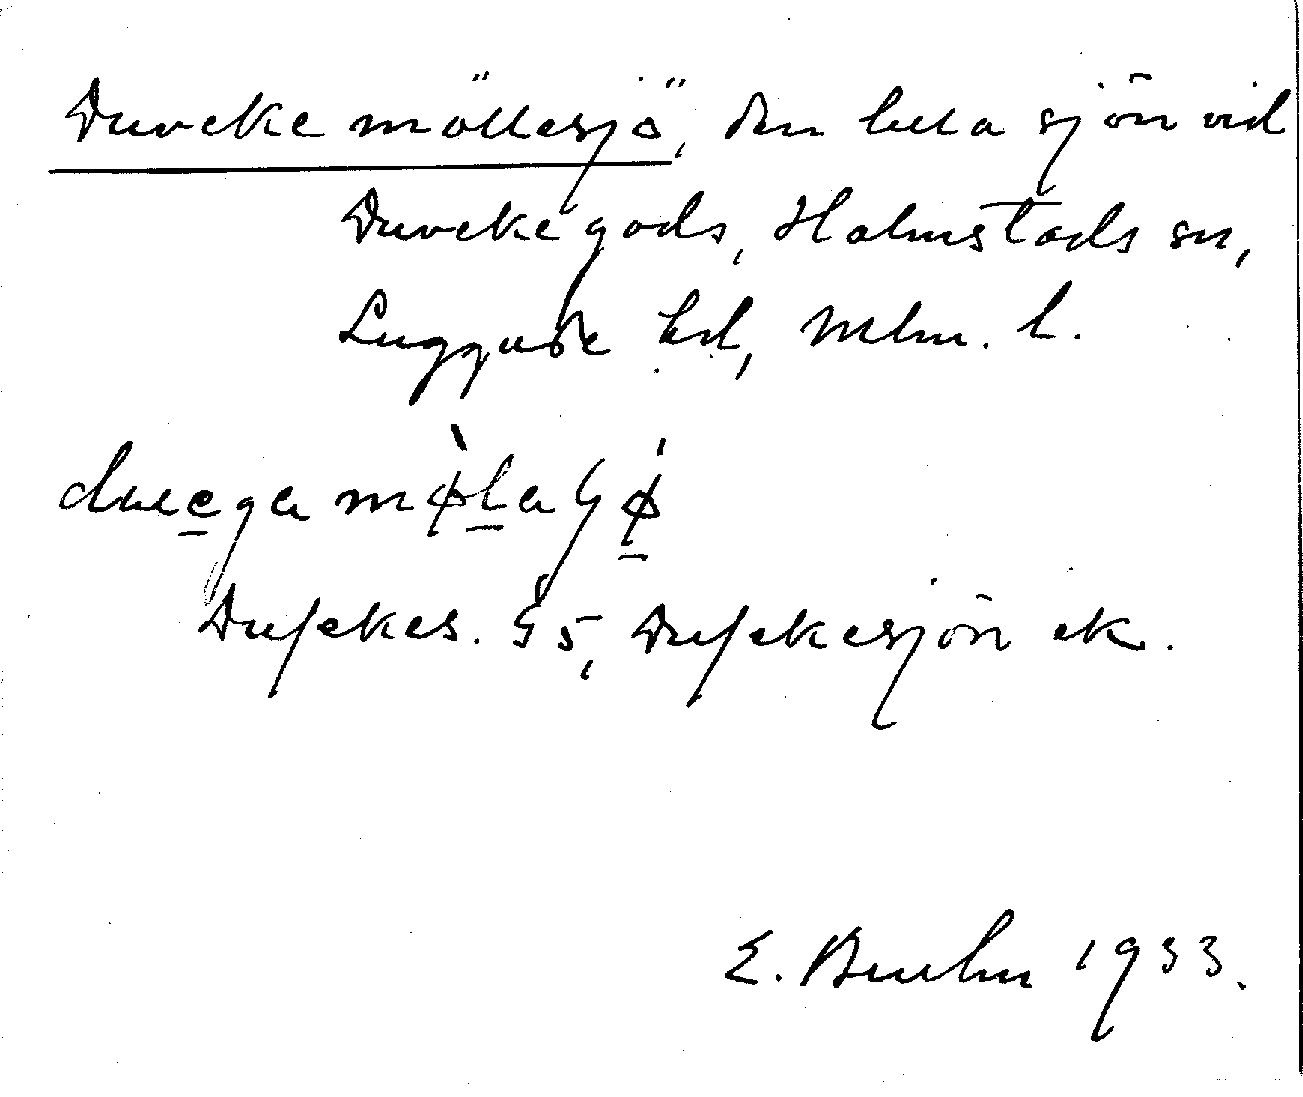 Duveke möllesjö, den lilla sjön vid
Duveke gods, Halmstads sn,
Luggude hd, Mlm. l.
Dufekes. G5, Dufekesjön ek.
E. Bruhn 1933.